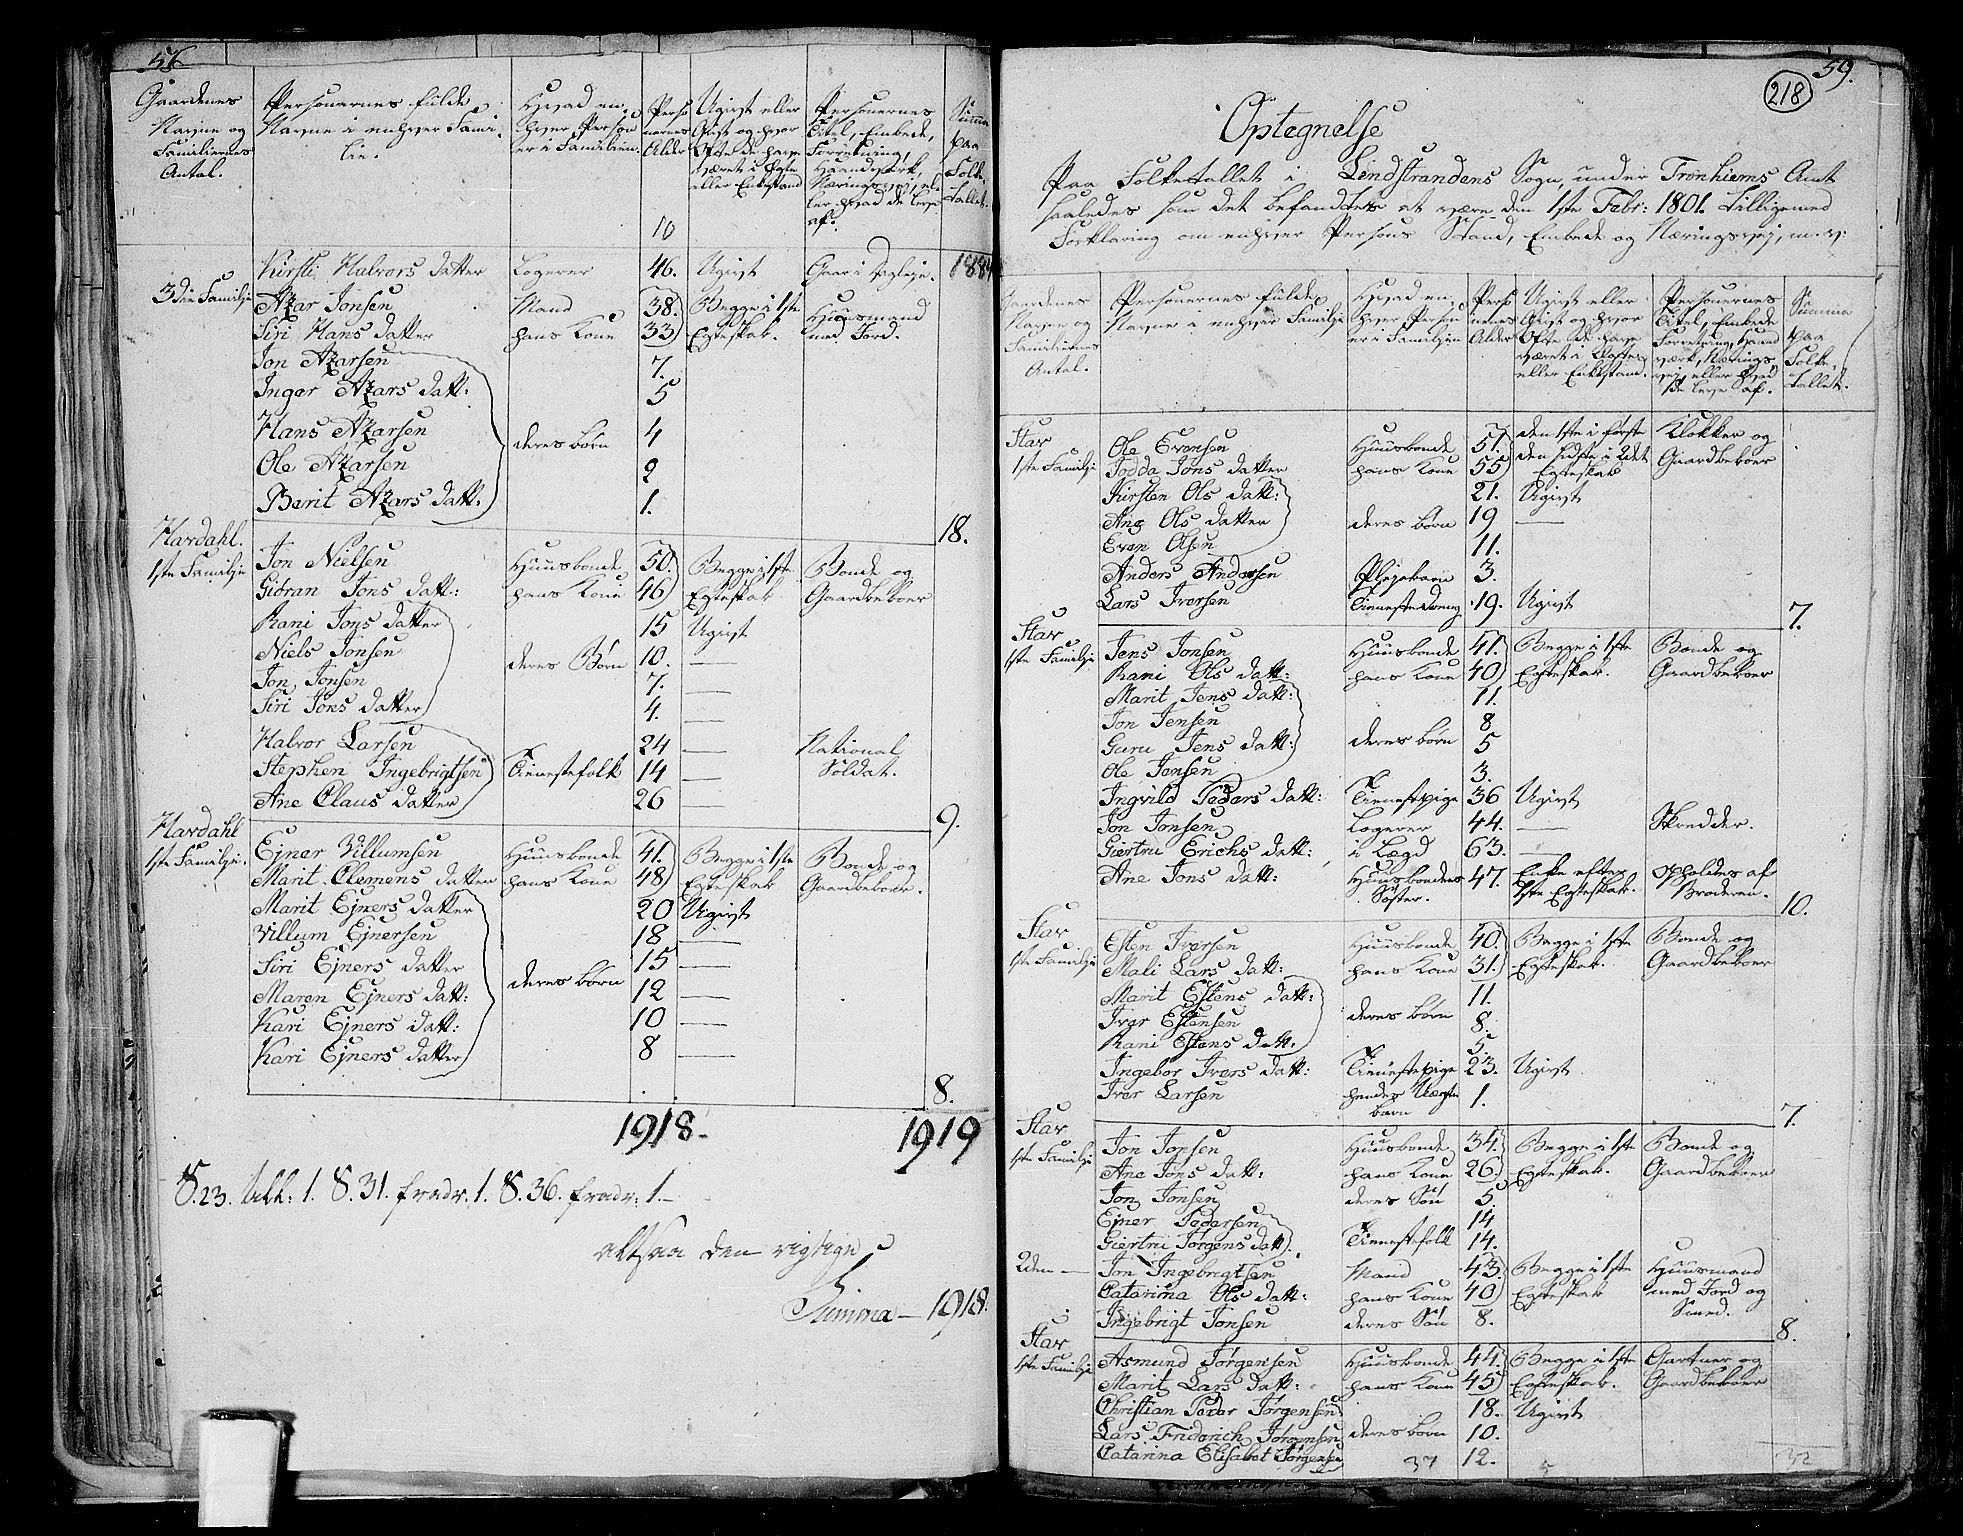 Gaardenes
Navne og
Familiernes
Antal.
Personernes fulde
Navne i enhver Fami-
lie.
Hvad en-
hver Person
er i Familien.
Perso
nernes
Alder
Ugivt eller
Givt og hvor
Ofte de have
været i Egte
eller Enkestand
Personernes
Titel, Embede,
Forretning,
Haandværk,
Næringsvej, el-
ler hvad de leve
af.
Summa
paa
Folke-
tallet.
10
Kirsti Halvors datter Logerer 46. Ugivt Gaar i Dagleje. 188
3die Familje
Azar Jonsen Mand 38. Begge i 1ste Huusmand
Siri Hans datter hans Kone 33 Egteskab. med Jord.
Jon Azarsen 7.
Inger Azars datt: 5
Hans Azarsen 4
deres børn
Ole Azarsen 2
Berit Azars datt: 1.
18.
Hardahl.
1ste Familje
Jon Nielsen Huusbonde 50. Begge i 1ste Bonde og
Gioran Jons datt: hans Kone 46 Egteskab Gaardbeboer
Rani Jons datter 15 Ugivt
Niels Jonsen deres Børn 10. —
Jon Jonsen 7. —
Siri Jons datter 4. —
Halvor Larsen 24 — National
Soldat.
Stephen Ingebrigtsen Tienestefolk 14 —
Ane Claus datter 26 —
9.
Hardahl
1ste Familje.
Ejner Villumsen Huusbonde 41. Begge i 1ste Bonde og
Marit Clemens datter hans Kone 48 Egteskab Gaardbeboer.
Marit Ejners datter 20 Ugivt
Villum Ejnersen 18 —
Siri Ejners datter 15 —
deres børn
Maren Ejners datt: 12 —
Kari Ejners datt: 10 —
Kari Ejners datter 8 —
8.
1918. 1919
S. 23. till: 1. S. 31. fradr. 1. S. 36. fradr: 1.—
altsaa den rigtige
Summa — 1918.
59.
218
Optegnelse
Paa Folketallet i Lindstrandens Sogn, under Tronhiems Amt
saaledes som det befandtes at være den 1ste Febr: 1801. Tilligemed
Forklaring om enhver Persons Stand, Embede og Næringsvej, m. v:
Gaardenes
Navne og
Familiernes
Antal.
Personernes fulde
Navne i enhver Familje
Hvad en-
hver Person
er i Familjen
Perso
nernes
Alder
Ugivt eller
Givt og hvor
Ofte de have
været i Egte-
eller Enkestand.
Personernes
Titel, Embede
Forretning, Haand
værk, Nærings
vej, eller hvad
de leve af.
Summa
paa
Folke-
tallet.
Stav
1ste Familje
Ole Evensen Huusbonde 51. den 1ste i første Klokker og
Jodda Jons datter hans Kone 55 den sidste i 2det Gaardbeboer
Egteskab
Kirsten Ols datt: 21. Ugivt
Ane Ols datter deres børn 19 —
Even Olsen 11.
Anders Andersen Plejebarn 3.
Lars Iversen Tienestedreng 19. Ugivt
7.
Stav
1ste Familje
Jens Jonsen Huusbonde 41. Begge i 1ste Bonde og
Rani Ols datt: hans Kone 40 Egteskab. Gaardbeboer
Marit Jens datt: 11.
Jon Jensen 8
Guru Jens datt: deres børn 5
Ole Jensen 3.
Ingvild Peders datt: Tienestepige 36 Ugivt
Jon Jonsen Logerer 44. — Skredder.
Giertru Erichs datt: i Lægd 63. —
Ane Jons datt: Huusbondens 47. Enke efter Opholdes af
Søster. 1ste Egteskab. Broderen.
10.
Stav
1ste Familje
Esten Iversen Huusbonde 40. Begge i 1ste Bonde og
Mali Lars datt: hans Kone 31. Egteskab. Gaardbeboer
Marit Estens datt: 11.
Iver Estensen deres børn 8.
Rani Estens datt: 5
Ingebor Ivers datt: Tienestepige 23. Ugivt
Iver Larsen hendes Uægte 1.
barn
7.
Stav
1ste Familje
Jon Jonsen Huusbonde 34. Begge i 1ste Bonde og
Ane Jons datt: hans Kone 26. Egteskab. Gaardbeboer
Jon Jonsen deres Søn 5.
Ejner Pedersen 14
Giertru Jørgens datt. Tienestefolk 14.
2den — Jon Ingebrigtsen Mand 43. Begge i 1ste Huusmand
Catarina Ols datt: hans Kone 40 Egteskab med Jord og
Ingebrigt Jonsen deres Søn 8. Smed.
8.
Stav
1ste Familje
Asmund Jørgensen Huusbonde 44. Begge i 1ste Gartner og
Marit Lars datt: hans Kone 45 Egteskab. Gaardbeboer
Christian Peder Jørgensen 18. Ugivt
Lars Friderich Jørgensen deres børn 10.
Catarina Elisabet Jørgensen 12.
37 32